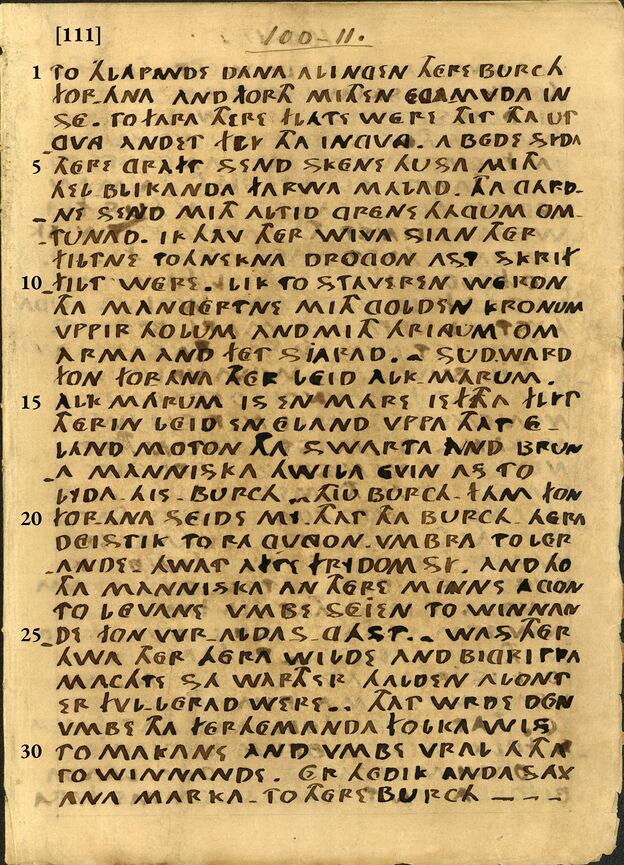 [111] 100-11.
1 TO HLAPANDE DANA ALINGEN THERE BURCH
FORANA AND FORTH MITH EN EGAMVDA IN
SE. TO FARA THERE FLATE WERE THIT THA UT
GVA ANDET FLY THA INGVA. A BEDE SYDA
5 THERE GRAFT SEND SKENE HUSA MITH
HEL BLIKANDA FARWA MALAD. THA GARD-
NE SEND MITH ALTID GRENE HAGUM OM-
TUNAD. IK HAV THER WIVA SIAN THER
FILTNE TOHNEKNA DROGON AST SKRIF
10 FILT WERE. LIK TO STAVEREN WERON
THA MANGERTNE MITH GOLDEN KRONUM
VPPIR HOLUM AND MITH HRINGUM OM
ARMA AND FET SIARAD. - SUDWARD
FON FORANA THER LEID ALK-MARUM.
15 ALK MARUM IS EN MARE IEFTHA FLYT
THERIN LEID EN ELAND VPPA THAT E-
LAND MOTON THA SWARTA AND BRUN
A MANNISKA HWILA EVIN AS TO
LYDA-HIS-BURCH. THIU BURCH-FAM FON
20 FORANA SEIDE MY. THAT THA BURCH-HERA
DEISTIK TO RA GVGON VMBRA TO LER
ANDE. HWAT AFTE FRYDOM SY. AND HO
THA MANNISKA AN THERE MINNE AGON
TO LEVANE VMBE SEJEN TO WINNAN
25 DE FON WR-ALDAS GAST. WAS THER
HWA THER HERA WILDE AND BIGRIPPA
MACHTE SA WARTH ER HALDEN ALONT
ER FVLLERAD WERE. THAT WRDE DEN
VMBE THA FERHEMANDA FOLKA WIS
30 TO MAKANE AND VMBE VRAL ATHA
TO WINNANDE. ER HEDIK ANDA SAX
ANA MARKA TO THERE BURCH ---